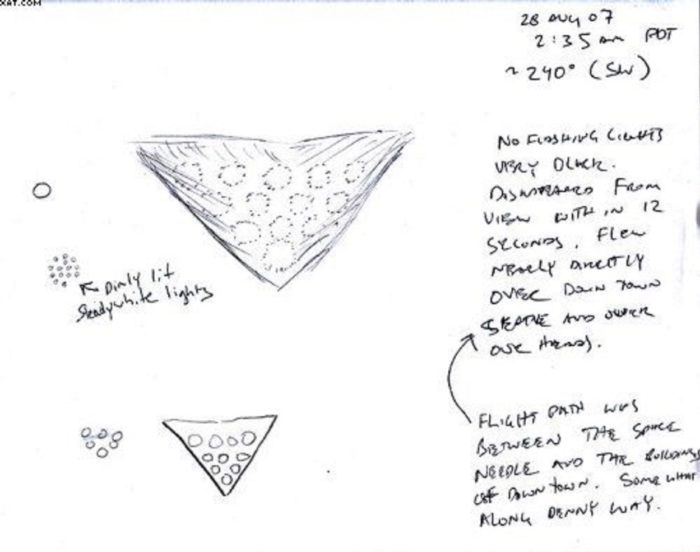 XAT.COM
28 AUG 07
2:35 am PDT
~ 240° (SW)
NO FLASHING LIGHTS
VERY QUICK.
DISAPPEARED FROM
VIEW WITH IN 12
SECONDS. FLEW
NEARLY DIRECTLY
OVER DOWN TOWN
SEATTLE AND OVER
OUR HEADS.
Dimly lit
Steady white lights
FLIGHT PATH WAS
BETWEEN THE SPACE
NEEDLE AND THE BUILDINGS
OF DOWN TOWN. SOME WHAT
ALONG DENNY WAY.